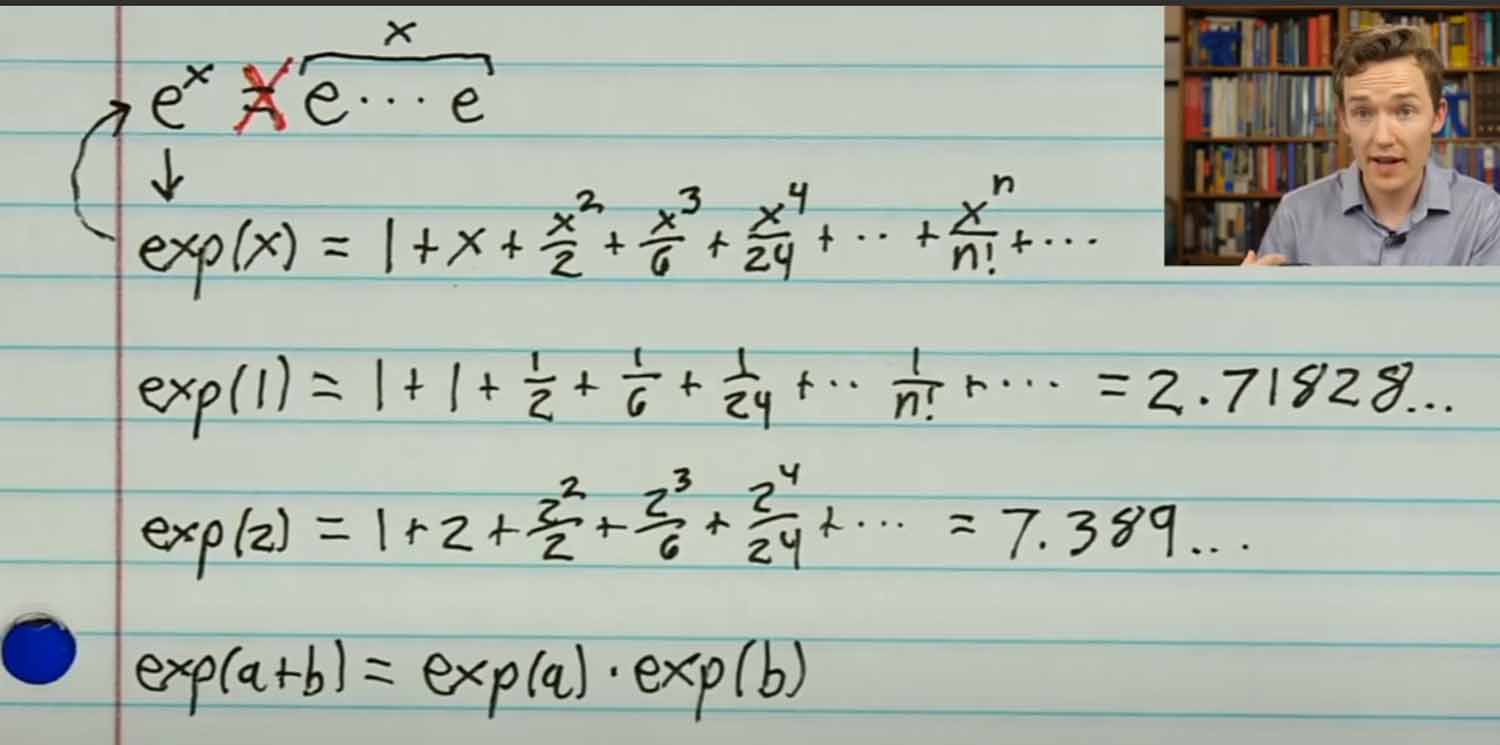 x
eˣ = e··· e
exp(x) = 1 + x + x²/2 + x³/6 + x⁴/24 + ·· + xⁿ/n! + ···
exp(1) = 1 + 1 + 1/2 + 1/6 + 1/24 + ·· 1/n! + ··· = 2.71828...
exp(2) = 1 + 2 + 2²/2 + 2³/6 + 2⁴/24 + ··· = 7.389...
exp(a+b) = exp(a) · exp(b)